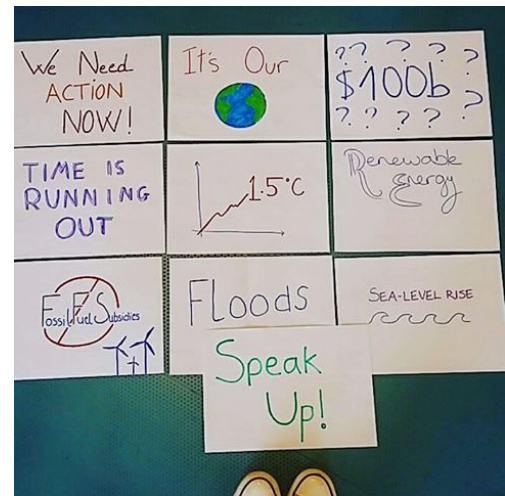 We Need
ACTION
NOW!
It's Our
? ? ? ? ?
$100b
? ? ? ? ?
TIME IS
RUNNING
OUT
1.5°C
Renewable
Energy
Fossil Fuel Subsidies
Floods
SEA-LEVEL RISE
Speak
Up!